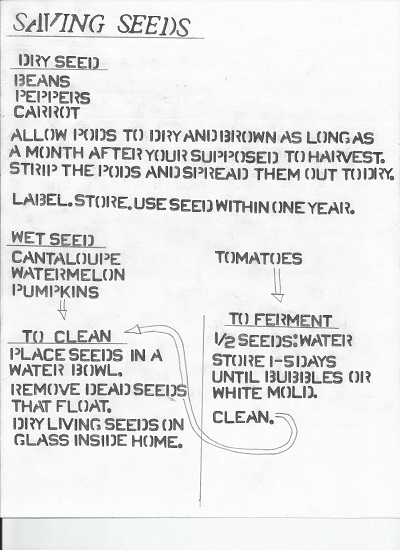 SAVING SEEDS
DRY SEED
BEANS
PEPPERS
CARROT
ALLOW PODS TO DRY AND BROWN AS LONG AS
A MONTH AFTER YOUR SUPPOSED TO HARVEST.
STRIP THE PODS AND SPREAD THEM OUT TO DRY.
LABEL. STORE. USE SEED WITHIN ONE YEAR.
WET SEED
CANTALOUPE
WATERMELON
PUMPKINS
TO CLEAN
PLACE SEEDS IN A
WATER BOWL.
REMOVE DEAD SEEDS
THAT FLOAT.
DRY LIVING SEEDS ON
GLASS INSIDE HOME.
TOMATOES
TO FERMENT
1/2 SEEDS:WATER
STORE 1-5 DAYS
UNTIL BUBBLES OR
WHITE MOLD.
CLEAN.